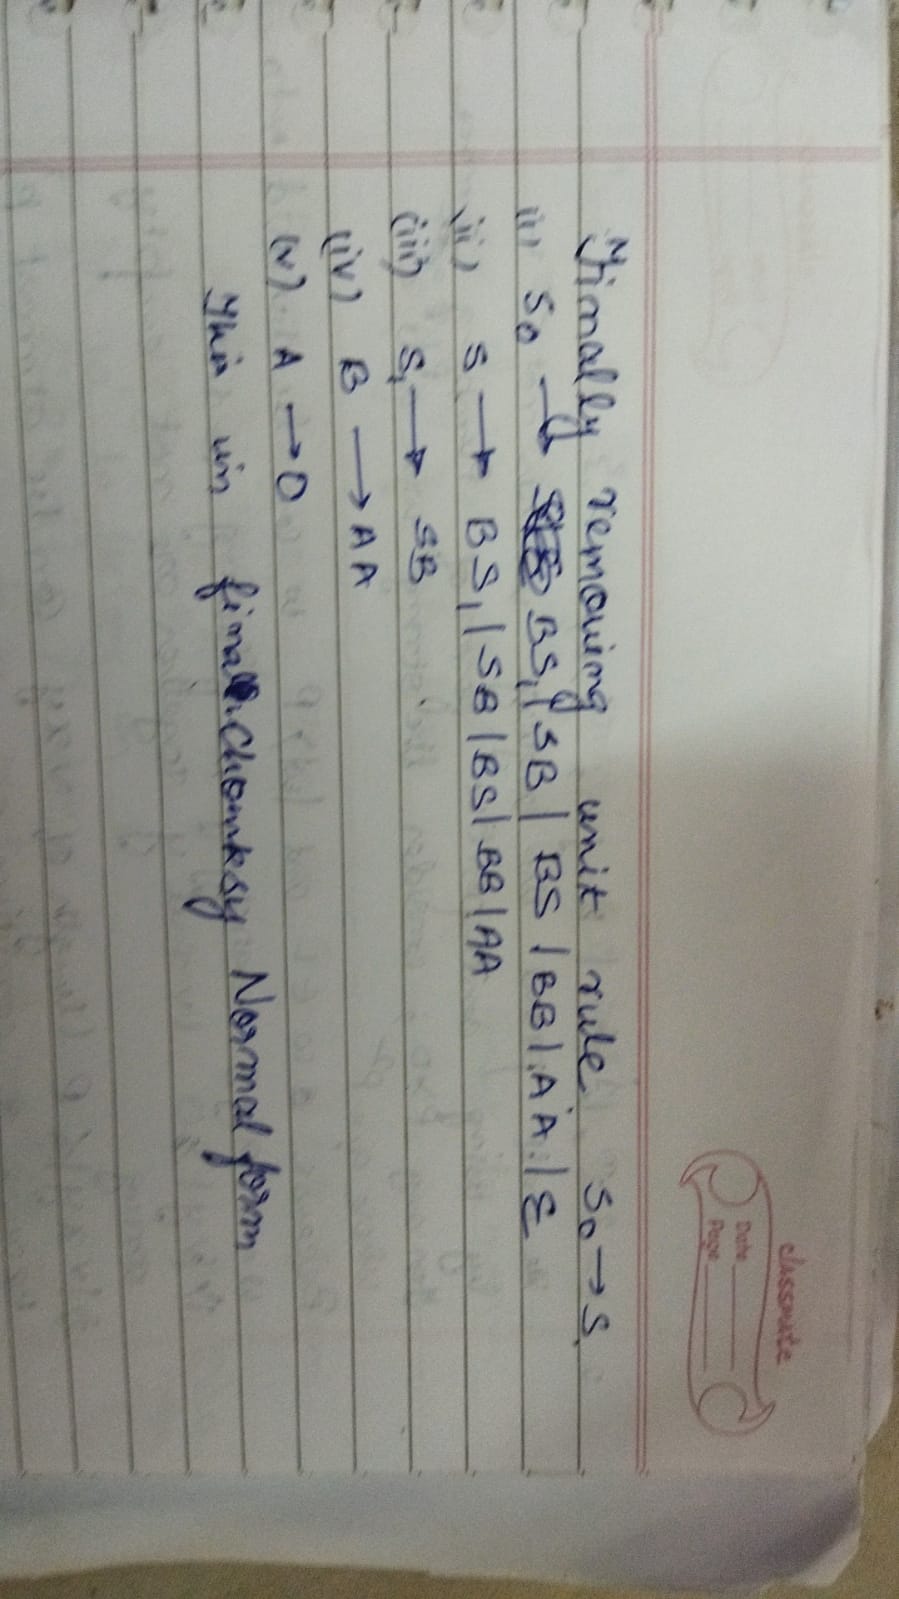 classmate
Date
Page
Finally removing unit rule S₀ → S.
(i) S₀ → BS₁ | SB | BS | BB | AA | ε
(ii) S → BS₁ | SB | BS | BB | AA
(iii) S₁ → SB
(iv) B → AA
(v) A → 0
This is final Chomksy Normal form